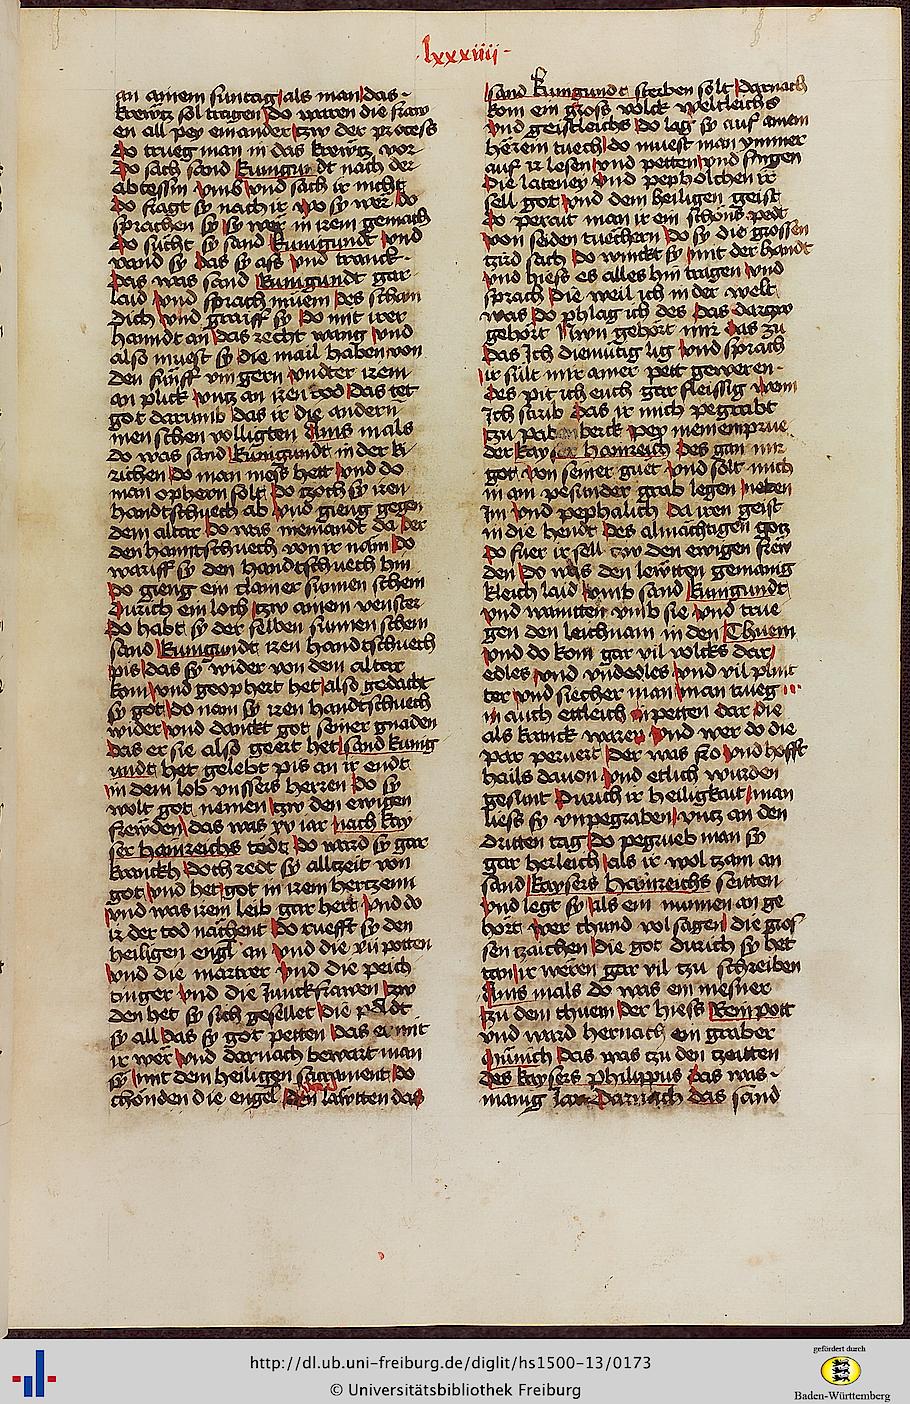 ·lxxxiiii·
an ainem suntag als man das ·
krewtz solt tragen do waren die fraw
en all pey einander tzw der process
do trueg man in das krewtz vor
do sach sand kungundt nach der
abtessin vmb vnd sach ir nicht
do fragt sy nach ir wo sy wer do
sprachen sy sy wer in irem gemach
do sucht sy sand kunigundt vnd
vand sy das sy ass vnd tranck ·
das was sand kunigundt gar
laid vnd sprach muem des scham
dich vnd graiff sy do mit irer
hanndt an das recht wang vnd
also muest sy die mail haben von
den funff vingern vndter irem
an plick vntz an iren tod das tet
got darumb das ir die andern
menschen volligten Ains mals
do was sand kunigundt in der ki
richen do man mess hett vnd do
man ophern solt do tzoch sy iren
handtschuech ab vnd gieng gegen
dem altar do was niemandt da der
den hanntschuech von ir nam do
warff sy den handtschuech hin
do gieng ein clainer sunnen schein
durich ein loch tzw ainem venster
do habt sy der selben sunnen schein
sand kunigundt iren handtschuech
pis das sy wider von dem altar
kom vnd geophert het also gedacht
sy got do nam sy iren handtschuech
wider vnd danckt got seiner gnaden
das er sie also geert het sand kunig
undt het gelebt pis an ir endt
in dem lob vnssers herren do sy
wolt got nemen tzw den ewigen
frewden das was xv iar nach kay
ser heinreichs todt do ward sy gar
kranckh doch redt sy alltzeit von
got vnd het got in irem hertzenn
vnd was irem leib gar hert vnd do
ir der tod nachent do ruefft sy den
heiligen engl an vnd die xii potten
vnd die martrer vnd die peich
tinger vnd die Junckfrawen tzw
den het sy sich gesellet die
sy all das sy got petten das er mit
ir wer vnd darnach bewart man
sy mit dem heiligen sacrament do
chonden die engel den lawtten das
sand kunigundt sterben solt darnach
kom ein gross volck weltleichs
vnd geistleichs do lag sy auf ainem
herein tuech do muest man ymmer
auf ir lesen vnd petten vnd singen
die lateney vnd pepholchen ir
sell got vnd dem heiligen geist
do perait man ir ein schons pedt
von seiden tuechern do sy die grossen
tzird sach do winckt sy mit der handt
vnd hiess es alles hin tragen vnd
sprach die weil ich in der welt
was do phlag ich des das dartzw
gehort Nun gehort mir das zu
das Ich diemutig lig vnd sprach
ir sult mir ainer pett geweren ·
des pit ich euch gar fleissig wenn
Ich stirb das ir mich pegrabt
tzu pabenberck pey meinem prue
der kayser heinreich des gan mir
got von seiner guet vnd solt mich
in ain pesunder grab legen neben
Im vnd pephalich da iren geist
in die hendt des almachtigen gotz
do fuer ir sell tzw den ewigen frew
den do was den lewtten gemainig
kleich laid vmb sand kunigundt
vnd wainten vmb sie vnd true
gen den leichnam in den Thuem
vnd do kom gar vil volcks dar
edles vnd vnedles vnd vil plint
ter vnd siecher man man trueg
in auch ettleich in petten dar die
als kranck waren vnd wer do die
par peruert der was fro vnd hofft
hails dauon vnd etlich wurden
gesunt durich ir heiligkait man
liess sy vnpegraben vntz an den
dritten tag do pegrueb man sy
gar herleich als ir wol tzam an
sand kaysers heinreichs seitten
vnd legt sy als ein munnen an ge
hort wer chund vol sagen die gros
sen tzaichen die got durich sy het
tan ir weren gar vil tzu schreiben
Ains mals do was ein mesner
tzu dem thuem der hiess Rempott
vnd ward hernach ein graber
munich das was tzu den tzeitten
des kaysers Philippus das was ·
manig Jar darnach das sand
http://dl.ub.uni-freiburg.de/diglit/hs1500-13/0173
© Universitätsbibliothek Freiburg
gefördert durch
Baden-Württemberg